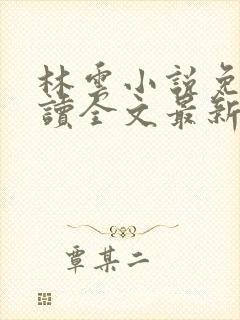 林雲小說免
讀全文最新
覃某二